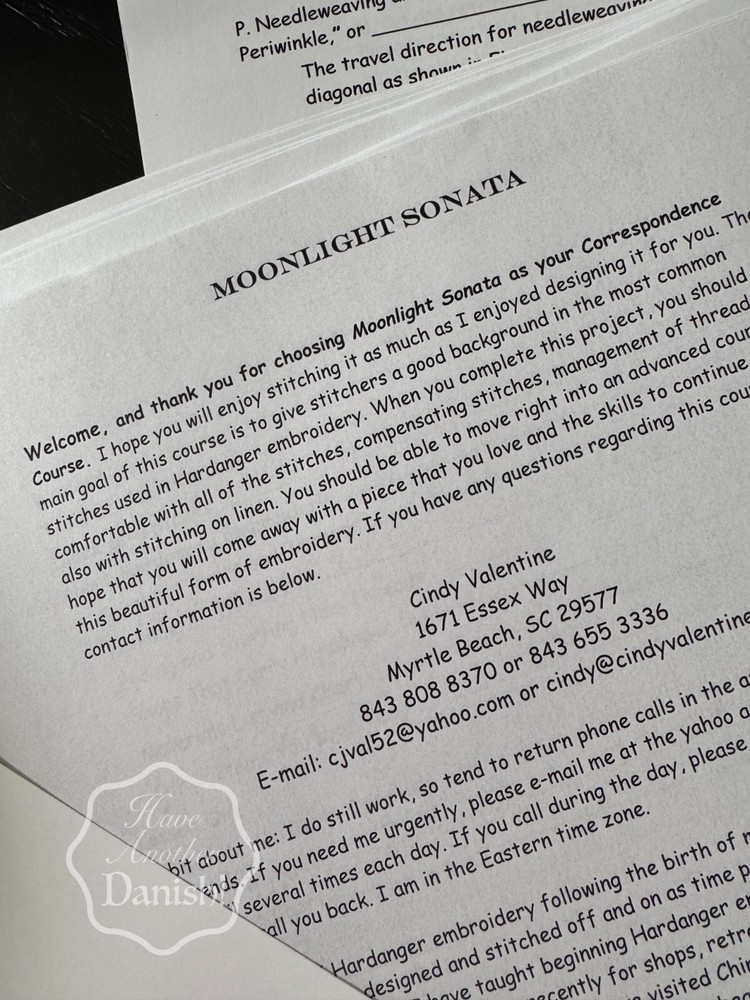 P. Needleweaving
Periwinkle," or
The travel direction for needleweaving
diagonal as shown in
MOONLIGHT SONATA
Welcome, and thank you for choosing Moonlight Sonata as your Correspondence
Course. I hope you will enjoy stitching it as much as I enjoyed designing it for you. The
main goal of this course is to give stitchers a good background in the most common
stitches used in Hardanger embroidery. When you complete this project, you should
comfortable with all of the stitches, compensating stitches, management of thread
also with stitching on linen. You should be able to move right into an advanced cour
hope that you will come away with a piece that you love and the skills to continue
this beautiful form of embroidery. If you have any questions regarding this cou
contact information is below.
Cindy Valentine
1671 Essex Way
Myrtle Beach, SC 29577
843 808 8370 or 843 655 3336
E-mail: cjval52@yahoo.com or cindy@cindyvalentine
bit about me: I do still work, so tend to return phone calls in the
ends. If you need me urgently, please e-mail me at the yahoo a
several times each day. If you call during the day, please
all you back. I am in the Eastern time zone.
Hardanger embroidery following the birth of
designed and stitched off and on as time p
have taught beginning Hardanger
recently for shops, retr
visited Chin
Have
Another
Danish!